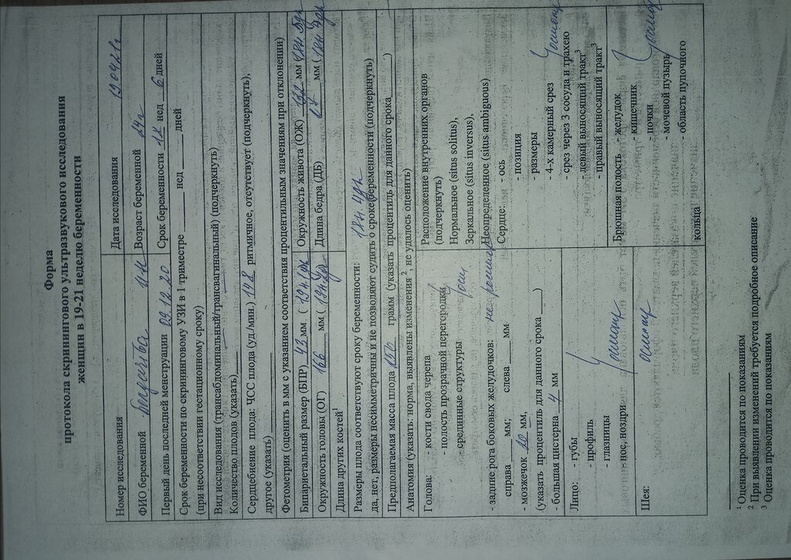 Форма
протокола скринингового ультразвукового исследования
женщин в 19-21 неделю беременности
Номер исследования
Дата исследования
ФИО беременной
Возраст беременной
Первый день последней менструации 09.12.20
Срок беременности нед 6 дней
Срок беременности по скрининговому УЗИ в 1 триместре ____ нед ____ дней
(при несоответствии гестационному сроку)
Вид исследования (трансабдоминальный/трансвагинальный) (подчеркнуть)
Количество плодов (указать)
Сердцебиение плода: ЧСС плода (уд./мин.) 148 ритмичное, отсутствует (подчеркнуть),
другое (указать)
Фетометрия (оценить в мм с указанием соответствия процентильным значениям при отклонении)
Бипариетальный размер (БПР) 43 мм (
Окружность живота (ОЖ) мм
Окружность головы (ОГ) 166 мм (
Длина бедра (ДБ) мм (
Длина других костей¹
Размеры плода соответствуют сроку беременности:
да, нет, размеры несимметричны и не позволяют судить о сроке беременности (подчеркнуть)
Предполагаемая масса плода грамм (указать процентиль для данного срока ____)
Анатомия (указать: норма, выявлены изменения², не удалось оценить)
Голова: - кости свода черепа
- полость прозрачной перегородки
- срединные структуры
- задние рога боковых желудочков:
справа ____ мм; слева ____ мм
- мозжечок 20 мм,
(указать процентиль для данного срока ____)
- большая цистерна 4 мм
Расположение внутренних органов
(подчеркнуть)
Нормальное (situs solitus),
Зеркальное (situs inversus),
Неопределенное (situs ambiguous)
Сердце: - ось
- позиция
- размеры
- 4-х камерный срез
- срез через 3 сосуда и трахею
- левый выносящий тракт³
- правый выносящий тракт³
Лицо: - губы
- профиль
- глазницы
- нос, ноздри
Брюшная полость - желудок
- кишечник
- почки
- мочевой пузырь
- область пупочного
кольца
Шея:
¹ Оценка проводится по показаниям
² При выявлении изменений требуется подробное описание
³ Оценка проводится по показаниям